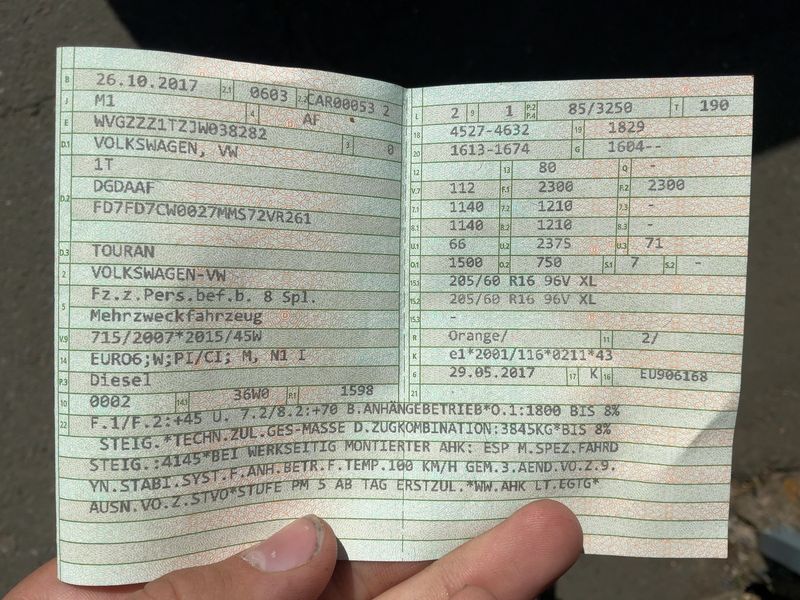 B 26.10.2017 2.1 0603 2.2 CAR00053 2
J M1 4 AF
E WVGZZZ1TZJW038282
D.1 VOLKSWAGEN, VW 3 0
D.2 1T
DGDAAF
FD7FD7CW0027MMS72VR261
D.3 TOURAN
2 VOLKSWAGEN-VW
5 Fz.z.Pers.bef.b. 8 Spl.
Mehrzweckfahrzeug
V.9 715/2007*2015/45W
14 EURO6;W;PI/CI; M, N1 I
P.3 Diesel
10 0002 14.1 36W0 P.1 1598
L 2 9 1 P.2 P.4 85/3250 T 190
18 4527-4632 19 1829
20 1613-1674 G 1604--
12 13 80 Q -
V.7 112 F.1 2300 F.2 2300
7.1 1140 7.2 1210 7.3 -
8.1 1140 8.2 1210 8.3 -
U.1 66 U.2 2375 U.3 71
O.1 1500 O.2 750 S.1 7 S.2 -
15.1 205/60 R16 96V XL
15.2 205/60 R16 96V XL
15.3 -
R Orange/ 11 2/
K e1*2001/116*0211*43
6 29.05.2017 17 K 16 EU906168
21
22 F.1/F.2:+45 U. 7.2/8.2:+70 B.ANHÄNGEBETRIEB*O.1:1800 BIS 8%
STEIG.*TECHN.ZUL.GES-MASSE D.ZUGKOMBINATION:3845KG*BIS 8%
STEIG.:4145*BEI WERKSEITIG MONTIERTER AHK: ESP M.SPEZ.FAHRD
YN.STABI.SYST.F.ANH.BETR.F.TEMP.100 KM/H GEM.3.AEND.VO.Z.9.
AUSN.VO.Z.STVO*STUFE PM 5 AB TAG ERSTZUL.*WW.AHK LT.EGTG*